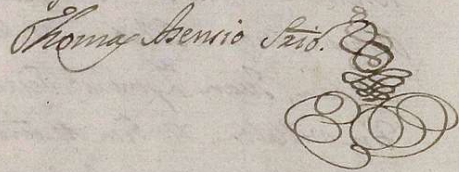 Thomas Asensio Ssio.